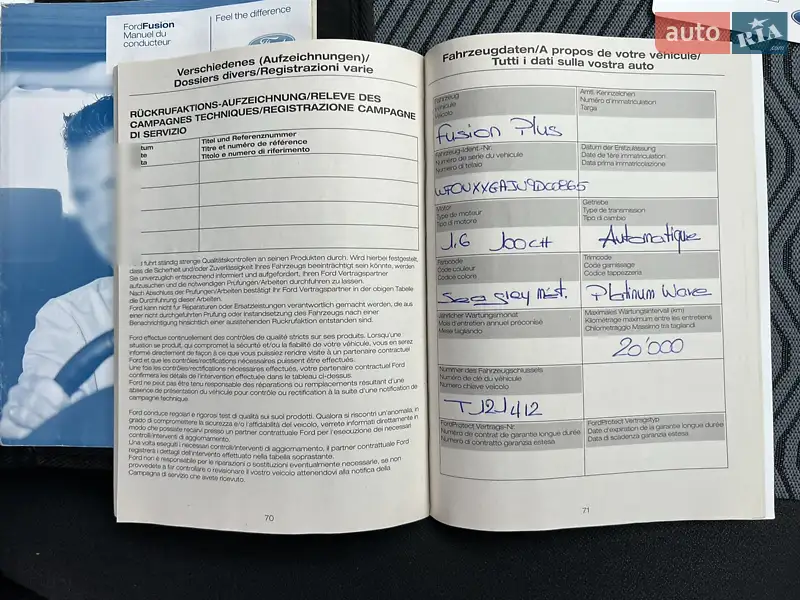 FordFusion
Manuel du
conducteur
Feel the difference
auto RIA .com
Verschiedenes (Aufzeichnungen)/
Dossiers divers/Registrazioni varie
RÜCKRUFAKTIONS-AUFZEICHNUNG/RELEVE DES
CAMPAGNES TECHNIQUES/REGISTRAZIONE CAMPAGNE
DI SERVIZIO
tum
te
ta
Titel und Referenznummer
Titre et numéro de référence
Titolo e numero di riferimento
führt ständig strenge Qualitätskontrollen an seinen Produkten durch. Wird hierbei festgestellt,
dass die Sicherheit und/oder Zuverlässigkeit Ihres Fahrzeugs beeinträchtigt sein könnte, werden
Sie unverzüglich entsprechend informiert und aufgefordert, Ihren Ford Vertragspartner
aufzusuchen und die notwendigen Prüfungen/Arbeiten durchführen zu lassen.
Nach Abschluss der Prüfungen/Arbeiten bestätigt Ihr Ford Vertragspartner in der obigen Tabelle
die Durchführung dieser Arbeiten.
Ford kann nicht für Reparaturen oder Ersatzleistungen verantwortlich gemacht werden, die aus
einer nicht durchgeführten Prüfung oder Instandsetzung des Fahrzeugs nach einer
Benachrichtigung hinsichtlich einer ausstehenden Rückrufaktion entstanden sind.
Ford effectue continuellement des contrôles de qualité stricts sur ses produits. Lorsqu'une
situation se produit, qui compromet la sécurité et/ou la fiabilité de votre véhicule, vous en serez
informé directement de façon à ce que vous puissiez rendre visite à un partenaire contractuel
Ford et que les contrôles/rectifications nécessaires puissent être effectués.
Une fois les contrôles/rectifications nécessaires effectués, votre partenaire contractuel Ford
confirmera les détails de l'intervention effectuée dans le tableau ci-dessus.
Ford ne peut pas être tenu responsable des réparations ou remplacements résultant d'une
absence de présentation du véhicule pour contrôle ou rectification à la suite d'une notification de
campagne technique.
Ford conduce regolari e rigorosi test di qualità sui suoi prodotti. Qualora si riscontri un'anomalia, in
grado di compromettere la sicurezza e/o l'affidabilità del veicolo, verrete informati direttamente in
modo che possiate recarvi presso un partner contrattuale Ford per l'esecuzione dei necessari
controlli/interventi di aggiornamento.
Una volta eseguiti i necessari controlli/interventi di aggiornamento, il partner contrattuale Ford
registrerà i dettagli dell'intervento effettuato nella tabella soprastante.
Ford non è responsabile per le riparazioni o sostituzioni eventualmente necessarie, se non
provvedete a far controllare o revisionare il vostro veicolo attenendovi alla notifica della
Campagna di servizio che avete ricevuto.
70
Fahrzeugdaten/A propos de votre véhicule/
Tutti i dati sulla vostra auto
Fahrzeug
Véhicule
Veicolo
Amtl. Kennzeichen
Numéro d'immatriculation
Targa
Fusion Plus
Fahrzeug-Ident.-Nr.
Numéro de série du véhicule
Numero di telaio
Datum der Erstzulassung
Date de 1ère immatriculation
Data prima immatricolazione
WFOUXXGAJU9DC0865
Motor
Type de moteur
Tipo di motore
Getriebe
Type de transmission
Tipo di cambio
1.6 100 CH
Automatique
Farbcode
Code couleur
Codice colore
Trimcode
Code garnissage
Codice tappezzeria
Sea grey mét.
Platinum Wave
Jährlicher Wartungsmonat
Mois d'entretien annuel préconisé
Mese tagliando
Maximales Wartungsintervall (km)
Kilométrage maximum entre les entretiens
Chilometraggio Massimo tra tagliandi
20'000
Nummer des Fahrzeugschlüssels
Numéro de clé du véhicule
Numero chiave veicolo
T 121412
FordProtect Vertrags-Nr.
Numéro de contrat de garantie longue durée
Numero di contratto garanzia estesa
FordProtect Vertragstyp
Date d'expiration de la garantie longue durée
Data di scadenza garanzia estesa
71